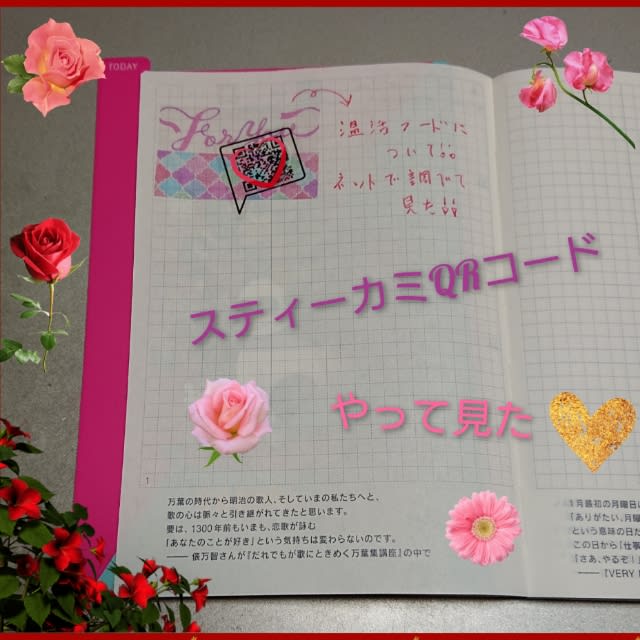 TODAY
For You
温活フードに
ついて!!
ネットで調べて
見た!!
スティーカミQRコード
やって見た
1
万葉の時代から明治の歌人、そしていまの私たちへと、
歌の心は脈々と引き継がれてきたと思います。
要は、1300年前もいまも、恋歌が詠む
「あなたのことが好き」という気持ちは変わらないのです。
—— 俵万智さんが『だれでもが歌にときめく万葉集講座』の中で
1月最初の月曜日
「ありがたい、月曜
という意味の日だ
この日から「仕事
「さあ、やるぞ!」
——『VERY